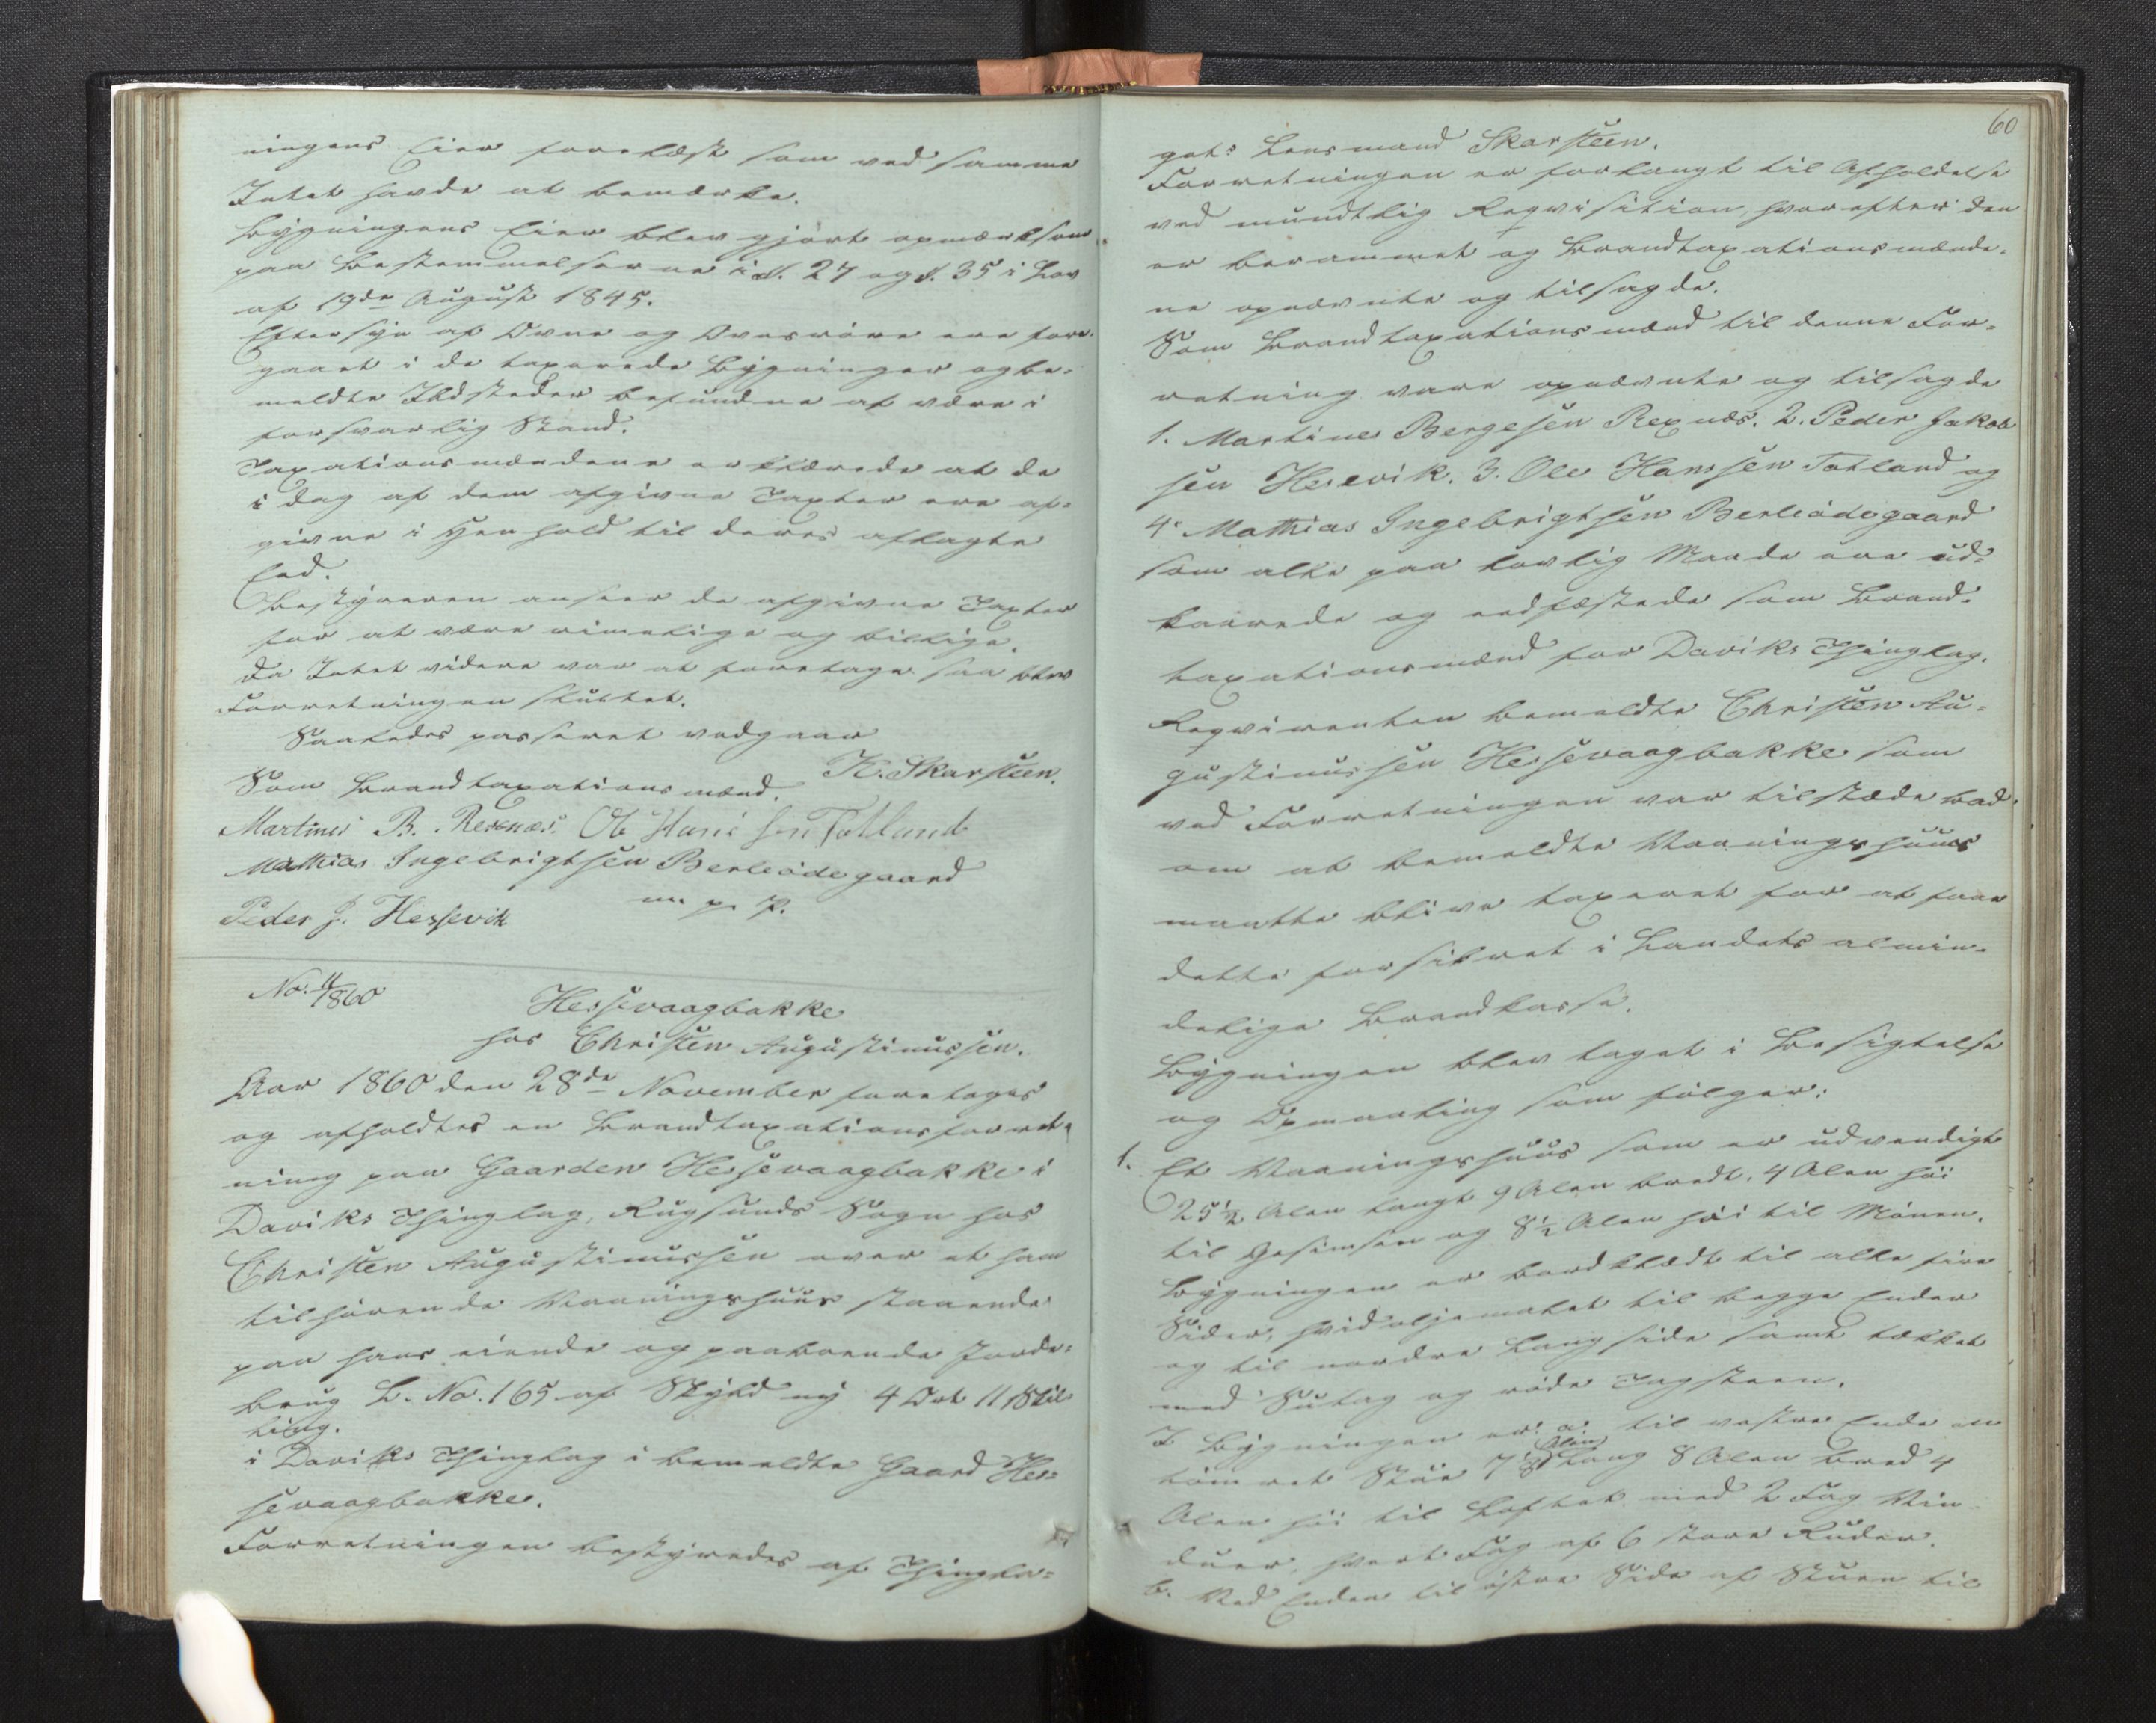 ningens Eier forelæst som ved samme
Intet havde at bemærke.
Bygningens Eier blev gjort opmærksom
paa Bestemmelserne i §. 27 og §. 35 i Lov
af 19de August 1845.
Eftersyn af Ovne og Ovnsröre ere fore-
gaaet i de taxerede Bygninger og be-
meldte Ildsteder befundne at være i
forsvarlig Stand.
Taxationsmændene erklærede at de
i dag af dem afgivne Taxter ere af-
givne i Henhold til deres aflagte
Eed.
Bestyreren anseer de afgivne Taxter
for at være rimelige og billige.
Da Intet videre var at foretage saa blev
Forretningen sluttet.
Saaledes passeret vedgaar
K. Skarsteen.
Som Brandtaxationsmænd.
Martines B. Rexnæs. Ole Hans sen Totland
Mathias Ingebrigtsen Berleödegaard
Peder J. Hessevik m. p. P.
No. 11/1860
Hessevaagbakke
hos Christen Augustinussen.
Aar 1860 den 28de November foretoges
og afholdtes en Brandtaxationsforret-
ning paa Gaarden Hessevaagbakke i
Daviks Thinglag, Rugsunds Sogn hos
Christen Augustinussen over et ham
tilhörende Vaaningshuus staaende
paa hans eiende og paaboende Jorde-
brug L. No. 165 af Skyld ny 4 Ort 11 Skil
ling.
i Daviks Thinglag i bemeldte Gaard Hes-
sevaagbakke.
Forretningen bestyredes af Thingla-
60
gets Lensmand Skarsteen.
Forretningen er forlangt til Afholdelse
ved mundtlig Reqvisition, hvorefter den
er berammet og Brandtaxationsmænde-
ne opnævnte og tilsagde.
Som Brandtaxationsmænd til denne For-
retning vare opnævnte og tilsagde
1. Martines Bergesen Rexnæs. 2. Peder Jakob
sen Hesevik. 3. Ole Hanssen Totland og
4. Mathias Ingebrigtsen Berleödegaard
som alle paa lovlig Maade ere ud-
kaarede og eedfæstede som Brand-
taxationsmænd for Daviks Thinglag.
Reqvirenten bemeldte Christen Au-
gustinussen Hessevaagbakke som
ved Forretningen var tilstæde bad
om at bemeldte Vaaningshuus
maatte blive taxeret for at faae
dette forsikret i Landets almin-
delige Brandkasse.
Bygningen blev taget i Besigtelse
og Opmaaling som fölger:
1. Et Vaaningshuus som er udvendigt
25½ Alen langt 9 Alen bredt, 4 Alen höi
til Gesimsen og 8½ Alen höi til Mönen.
Bygningen er bordklædt til alle fire
Sider, hvidoljemalet til begge Ender
og til nordre Langside samt tækket
med Sutag og röde Tagsteen.
I Bygningen er: a. til vestre Ende en
tömret Stue 7⅞ Alen lang 8 Alen bred 4
Alen höi til Loftet med 2 Fag Vin-
duer, hvert Fag af 6 store Ruder.
b. Ved Enden til östre Side af Stuen til